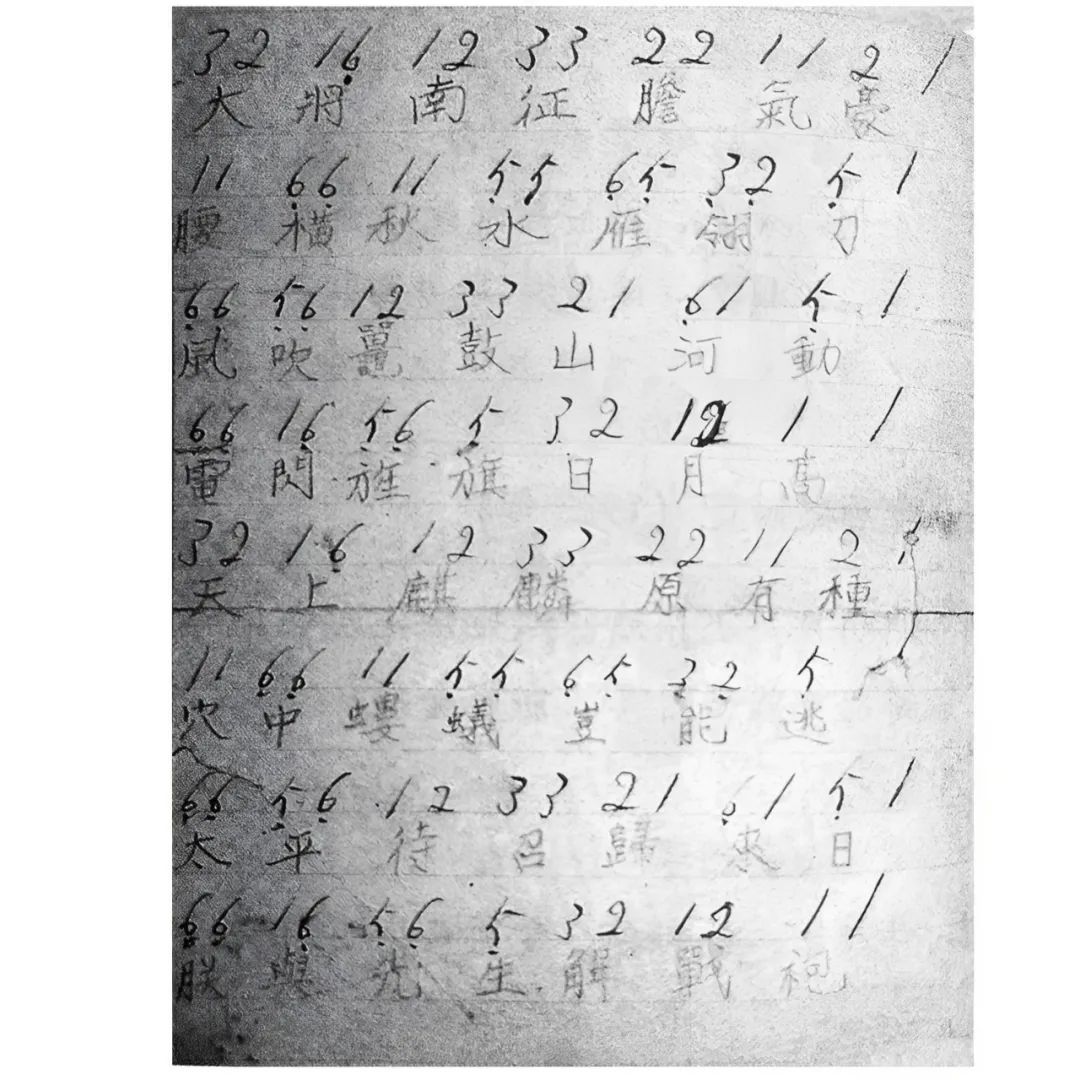 32 16 12 33 22 11 2 1
大 將 南 征 膽 氣 豪
11 66 11 55 65 32 5 1
腰 橫 秋 水 雁 翎 刀
66 56 12 33 21 61 5 1
風 吹 鼉 鼓 山 河 動
66 16 56 5 32 12 1 1
電 閃 旌 旗 日 月 高
32 16 12 33 22 11 2 1
天 上 麒 麟 原 有 種
11 66 11 55 65 32 5
穴 中 螻 蟻 豈 能 逃
66 56 12 33 21 61 5 1
太 平 待 召 歸 來 日
66 16 56 5 32 12 1 1
朕 與 先 生 解 戰 袍